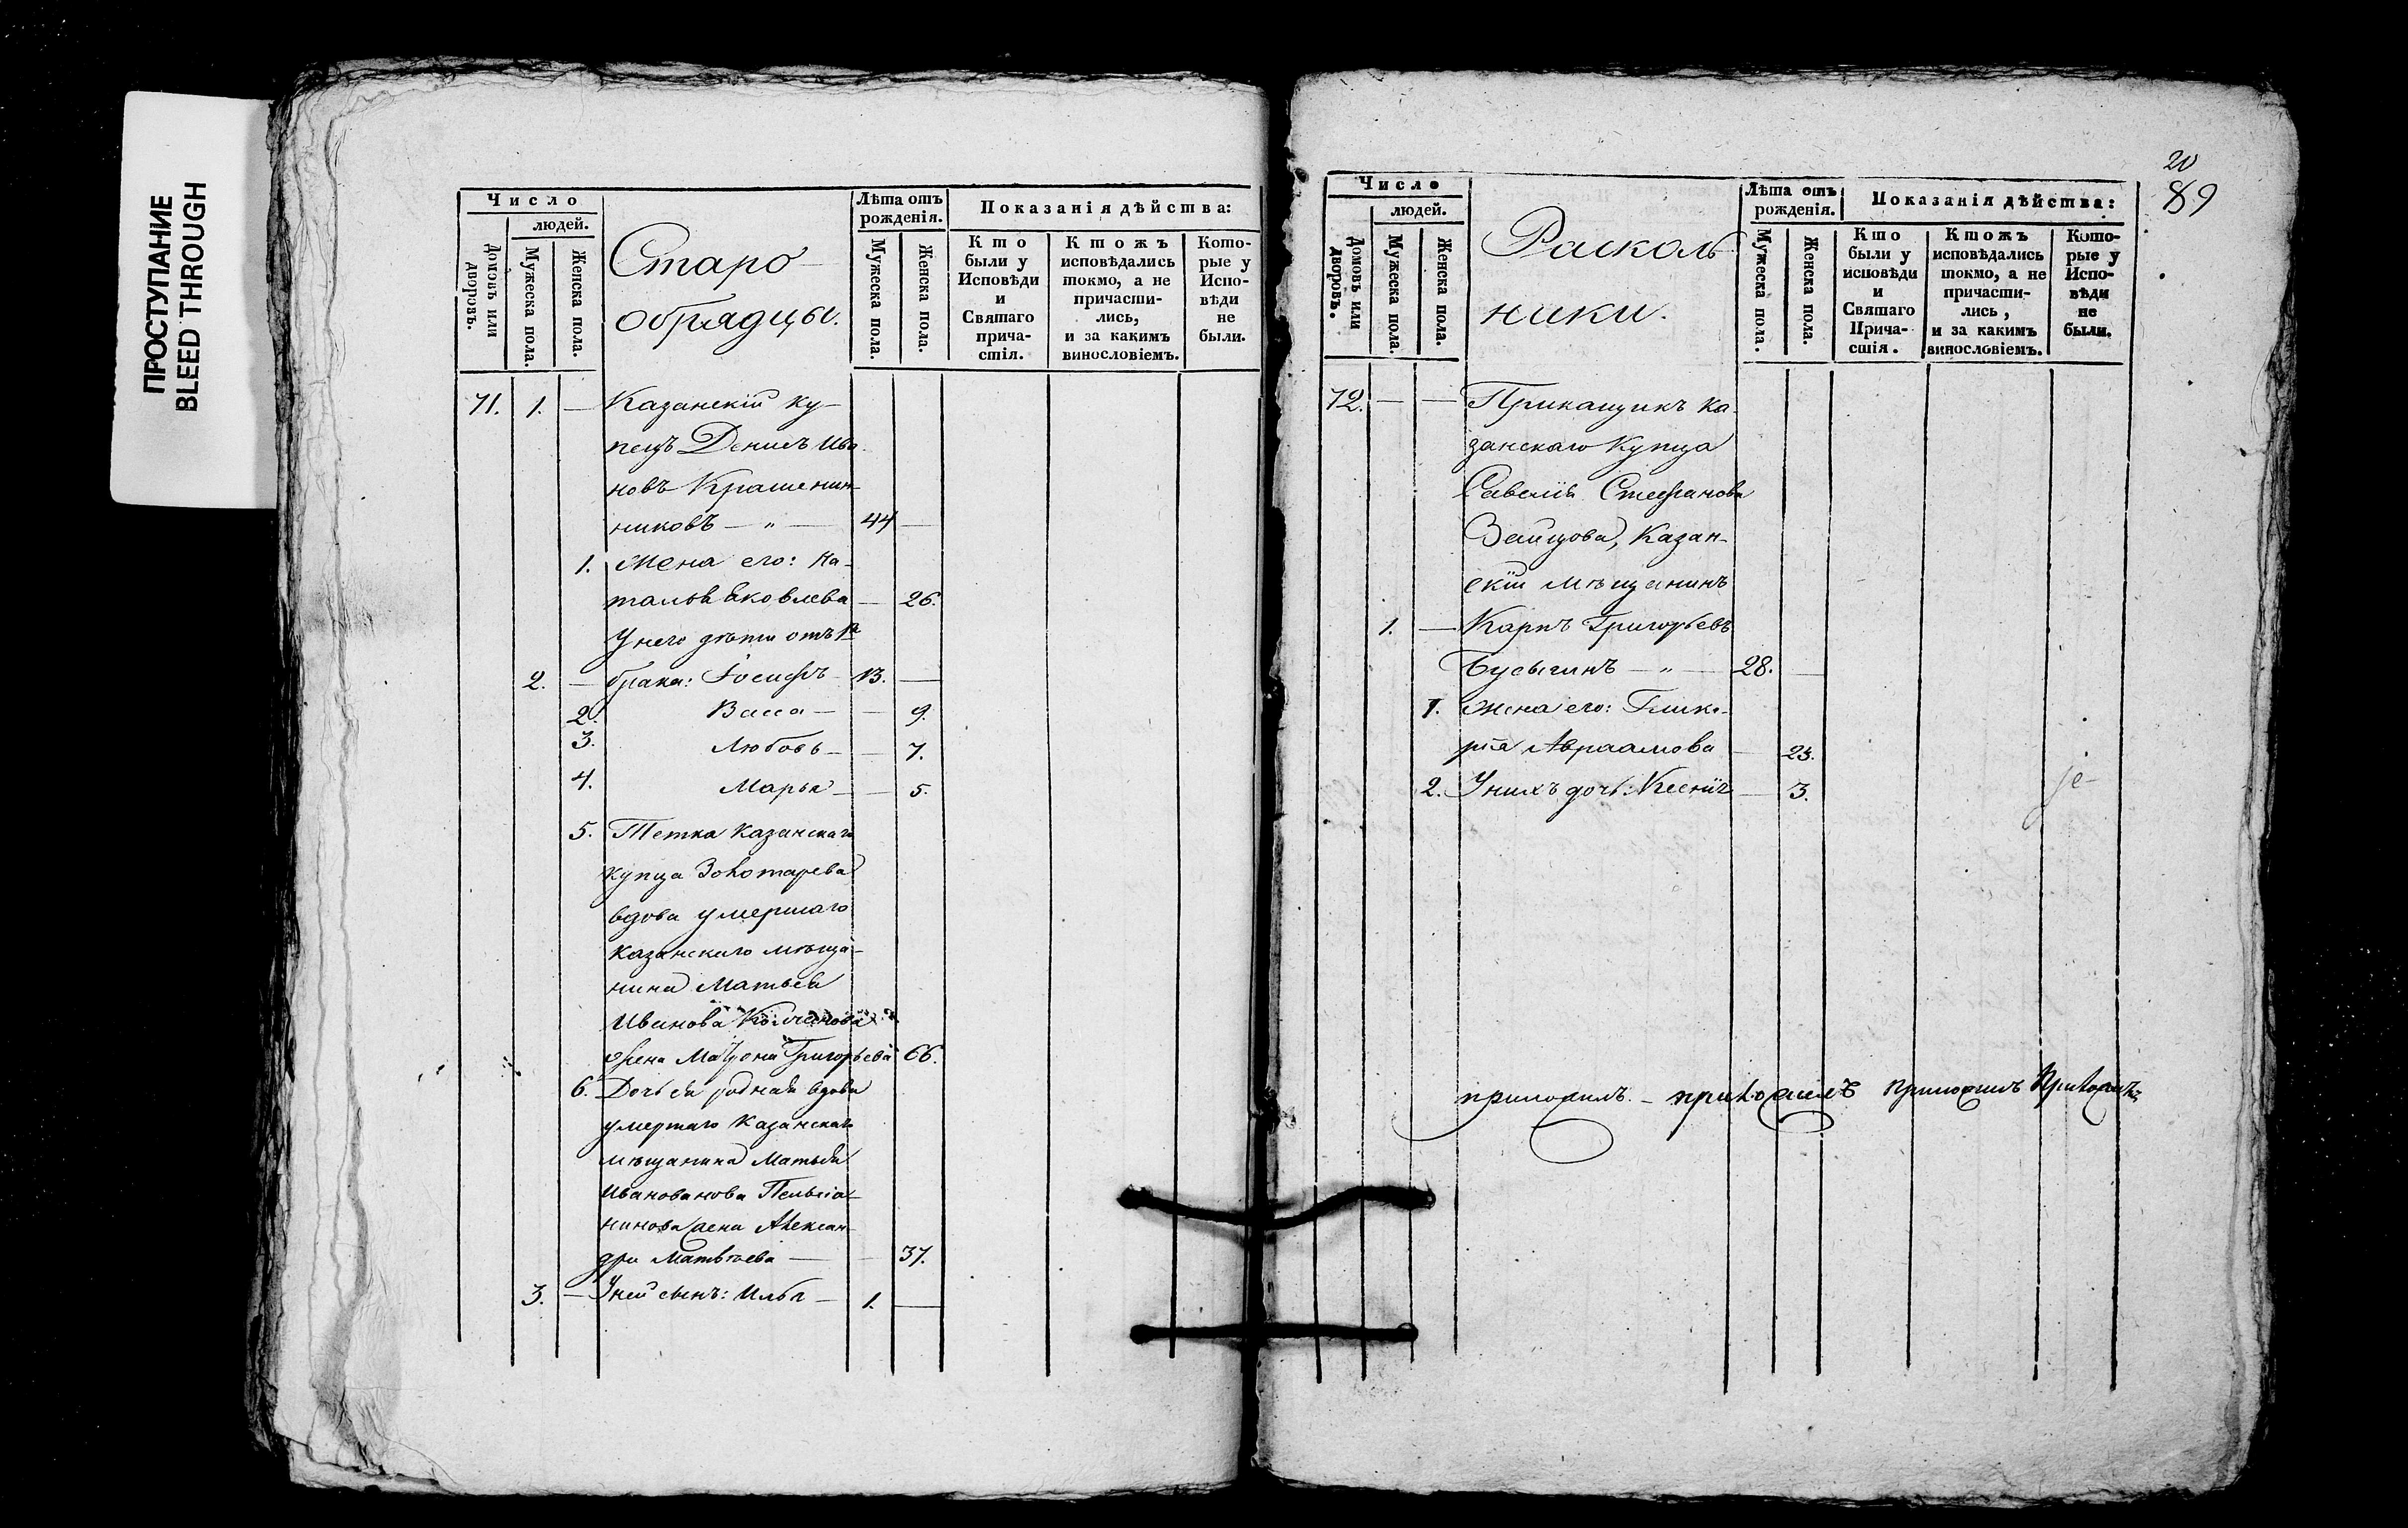 ПРОСТУПАНИЕ
BLEED THROUGH
Число
людей.
Домовъ или дворовъ.
Мужеска пола.
Женска пола.
Старо-
обрядцы.
Лѣта отъ
рожденія.
Мужеска пола.
Женска пола.
Показанія дѣйства:
Кто
были у
Исповѣди
и
Святаго
прича-
стія.
Ктожъ
исповѣдались
токмо, а не
причасти-
лись,
и за какимъ
винословіемъ.
Кото-
рые у
Испо-
вѣди
не
были.
71. 1. — Казанскій ку-
пецъ Денисъ Ива-
новъ Крашенин-
никовъ — „ — 44 —
1. Жена его: На-
талья Яковлева — 26.
У него дѣти отъ 1го
2. — брака: Іосифъ — 13. —
2. Васса — — 9.
3. Любовь — — 7.
4. Марья — — 5.
5. Тетка Казанскаго
купца Золотарева
вдова умершаго
Казанскаго мѣща-
нина Матвея
Иванова
жена Матрона Григорьева 66.
6. Дочь ея родная вдова
умершаго Казанскаго
мѣщанина Матвея
жена Алексан-
дра Матвѣева — — 37.
3. — У ней сынъ: Илья — 1. —
20
89
Число
людей.
Домовъ или дворовъ.
Мужеска пола.
Женска пола.
Расколь
ники.
Лѣта отъ
рожденія.
Мужеска пола.
Женска пола.
Показанія дѣйства:
Кто
были у
исповѣди
и
Святаго
Прича-
стія.
Ктожъ
исповѣдались
токмо, а не
причасти-
лись,
и за какимъ
винословіемъ.
Кото-
рые у
Испо-
вѣди
не
были.
72. — — Прикащикъ Ка-
занскаго Купца
Савелія Стефанова
Зайцова, Казан-
скій мѣщанинъ
1. — Карпъ Григорьевъ
Бусыгинъ — „ — 28. —
1. Жена его: Глике-
рія Авраамова — 23.
2. У нихъ дочь: Ксенія — 3.